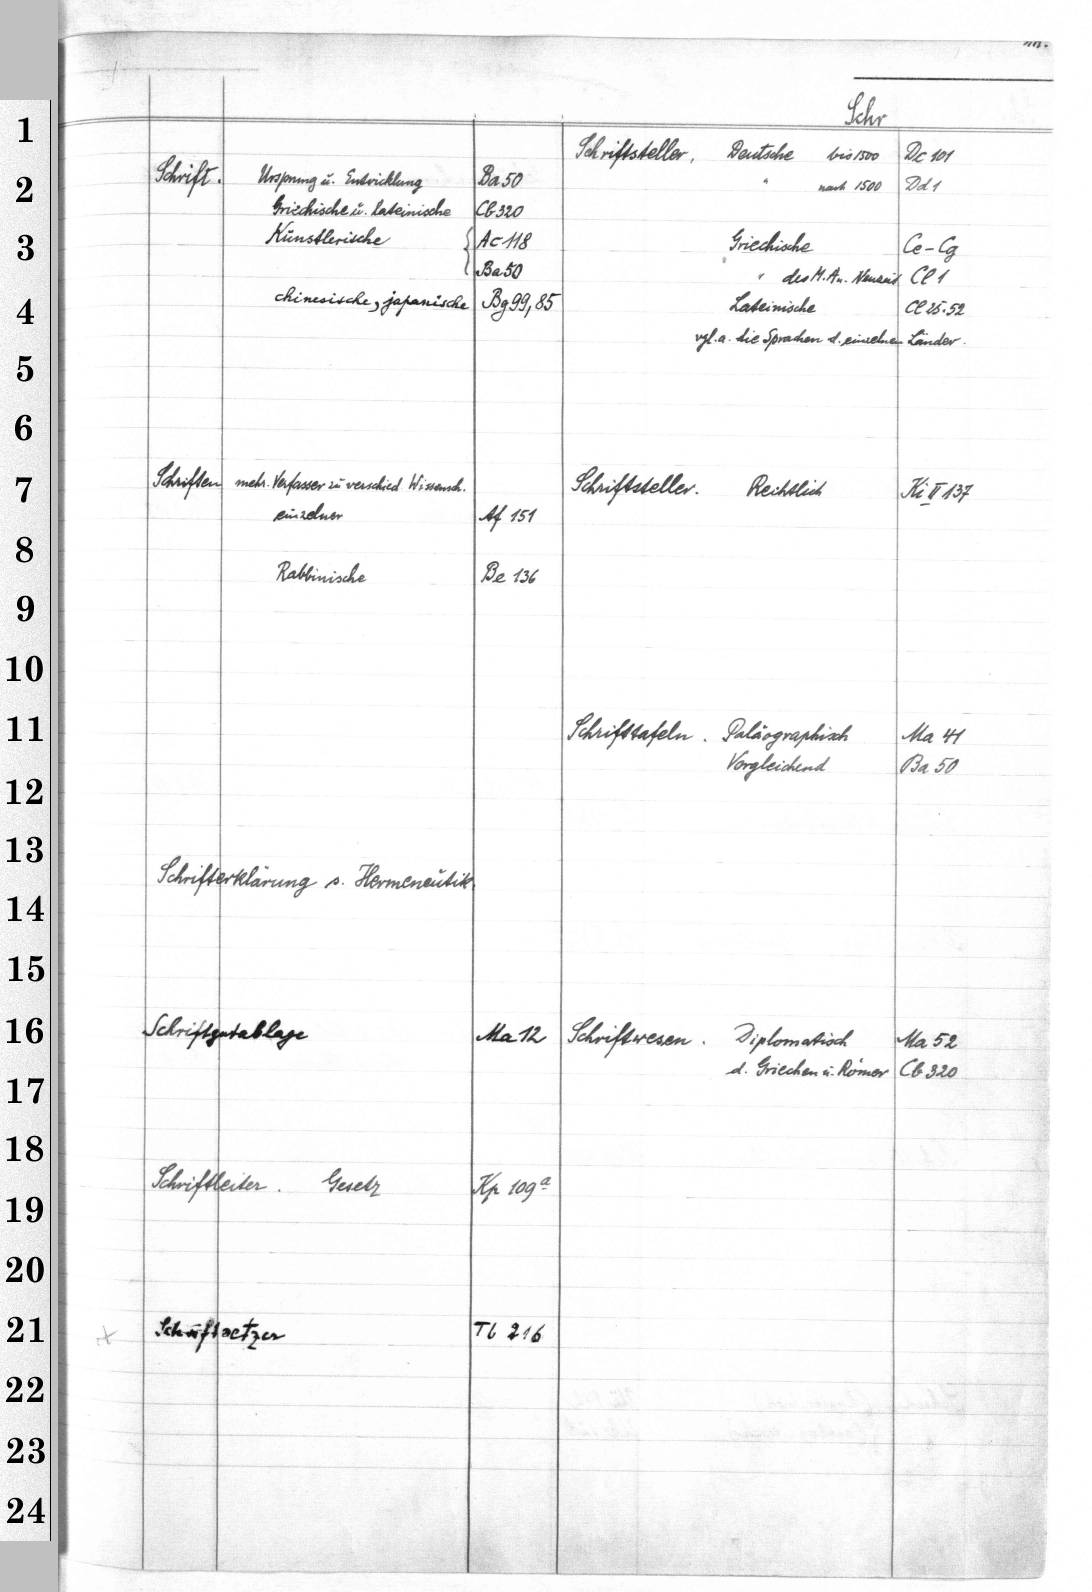 Schr
1
2
3
4
5
6
7
8
9
10
11
12
13
14
15
16
17
18
19
20
21
22
23
24
Schrift. Ursprung u. Entwicklung Ba 50
Griechische u. Lateinische Cb 320
Künstlerische { Ac 118
Ba 50
chinesische, japanische Bg 99, 85
Schriften mehr. Verfasser zu verschied. Wissensch.
einzelner Af 151
Rabbinische Be 136
Schrifterklärung s. Hermeneutik.
Schriftgutablage Ma 12
Schriftleiter. Gesetz Kp 109a
Schriftsetzer Tb 216
Schriftsteller, Deutsche bis 1500 Dc 101
" nach 1500 Dd 1
Griechische Ce-Cg
" des M.A. u. Neuzeit Cl 1
Lateinische Cl 25-52
vgl. a. die Sprachen d. einzelnen Länder.
Schriftsteller. Rechtlich Ki II 137
Schrifttafeln. Paläographisch Ma 41
Vergleichend Ba 50
Schriftwesen. Diplomatisch Ma 52
d. Griechen u. Römer Cb 320